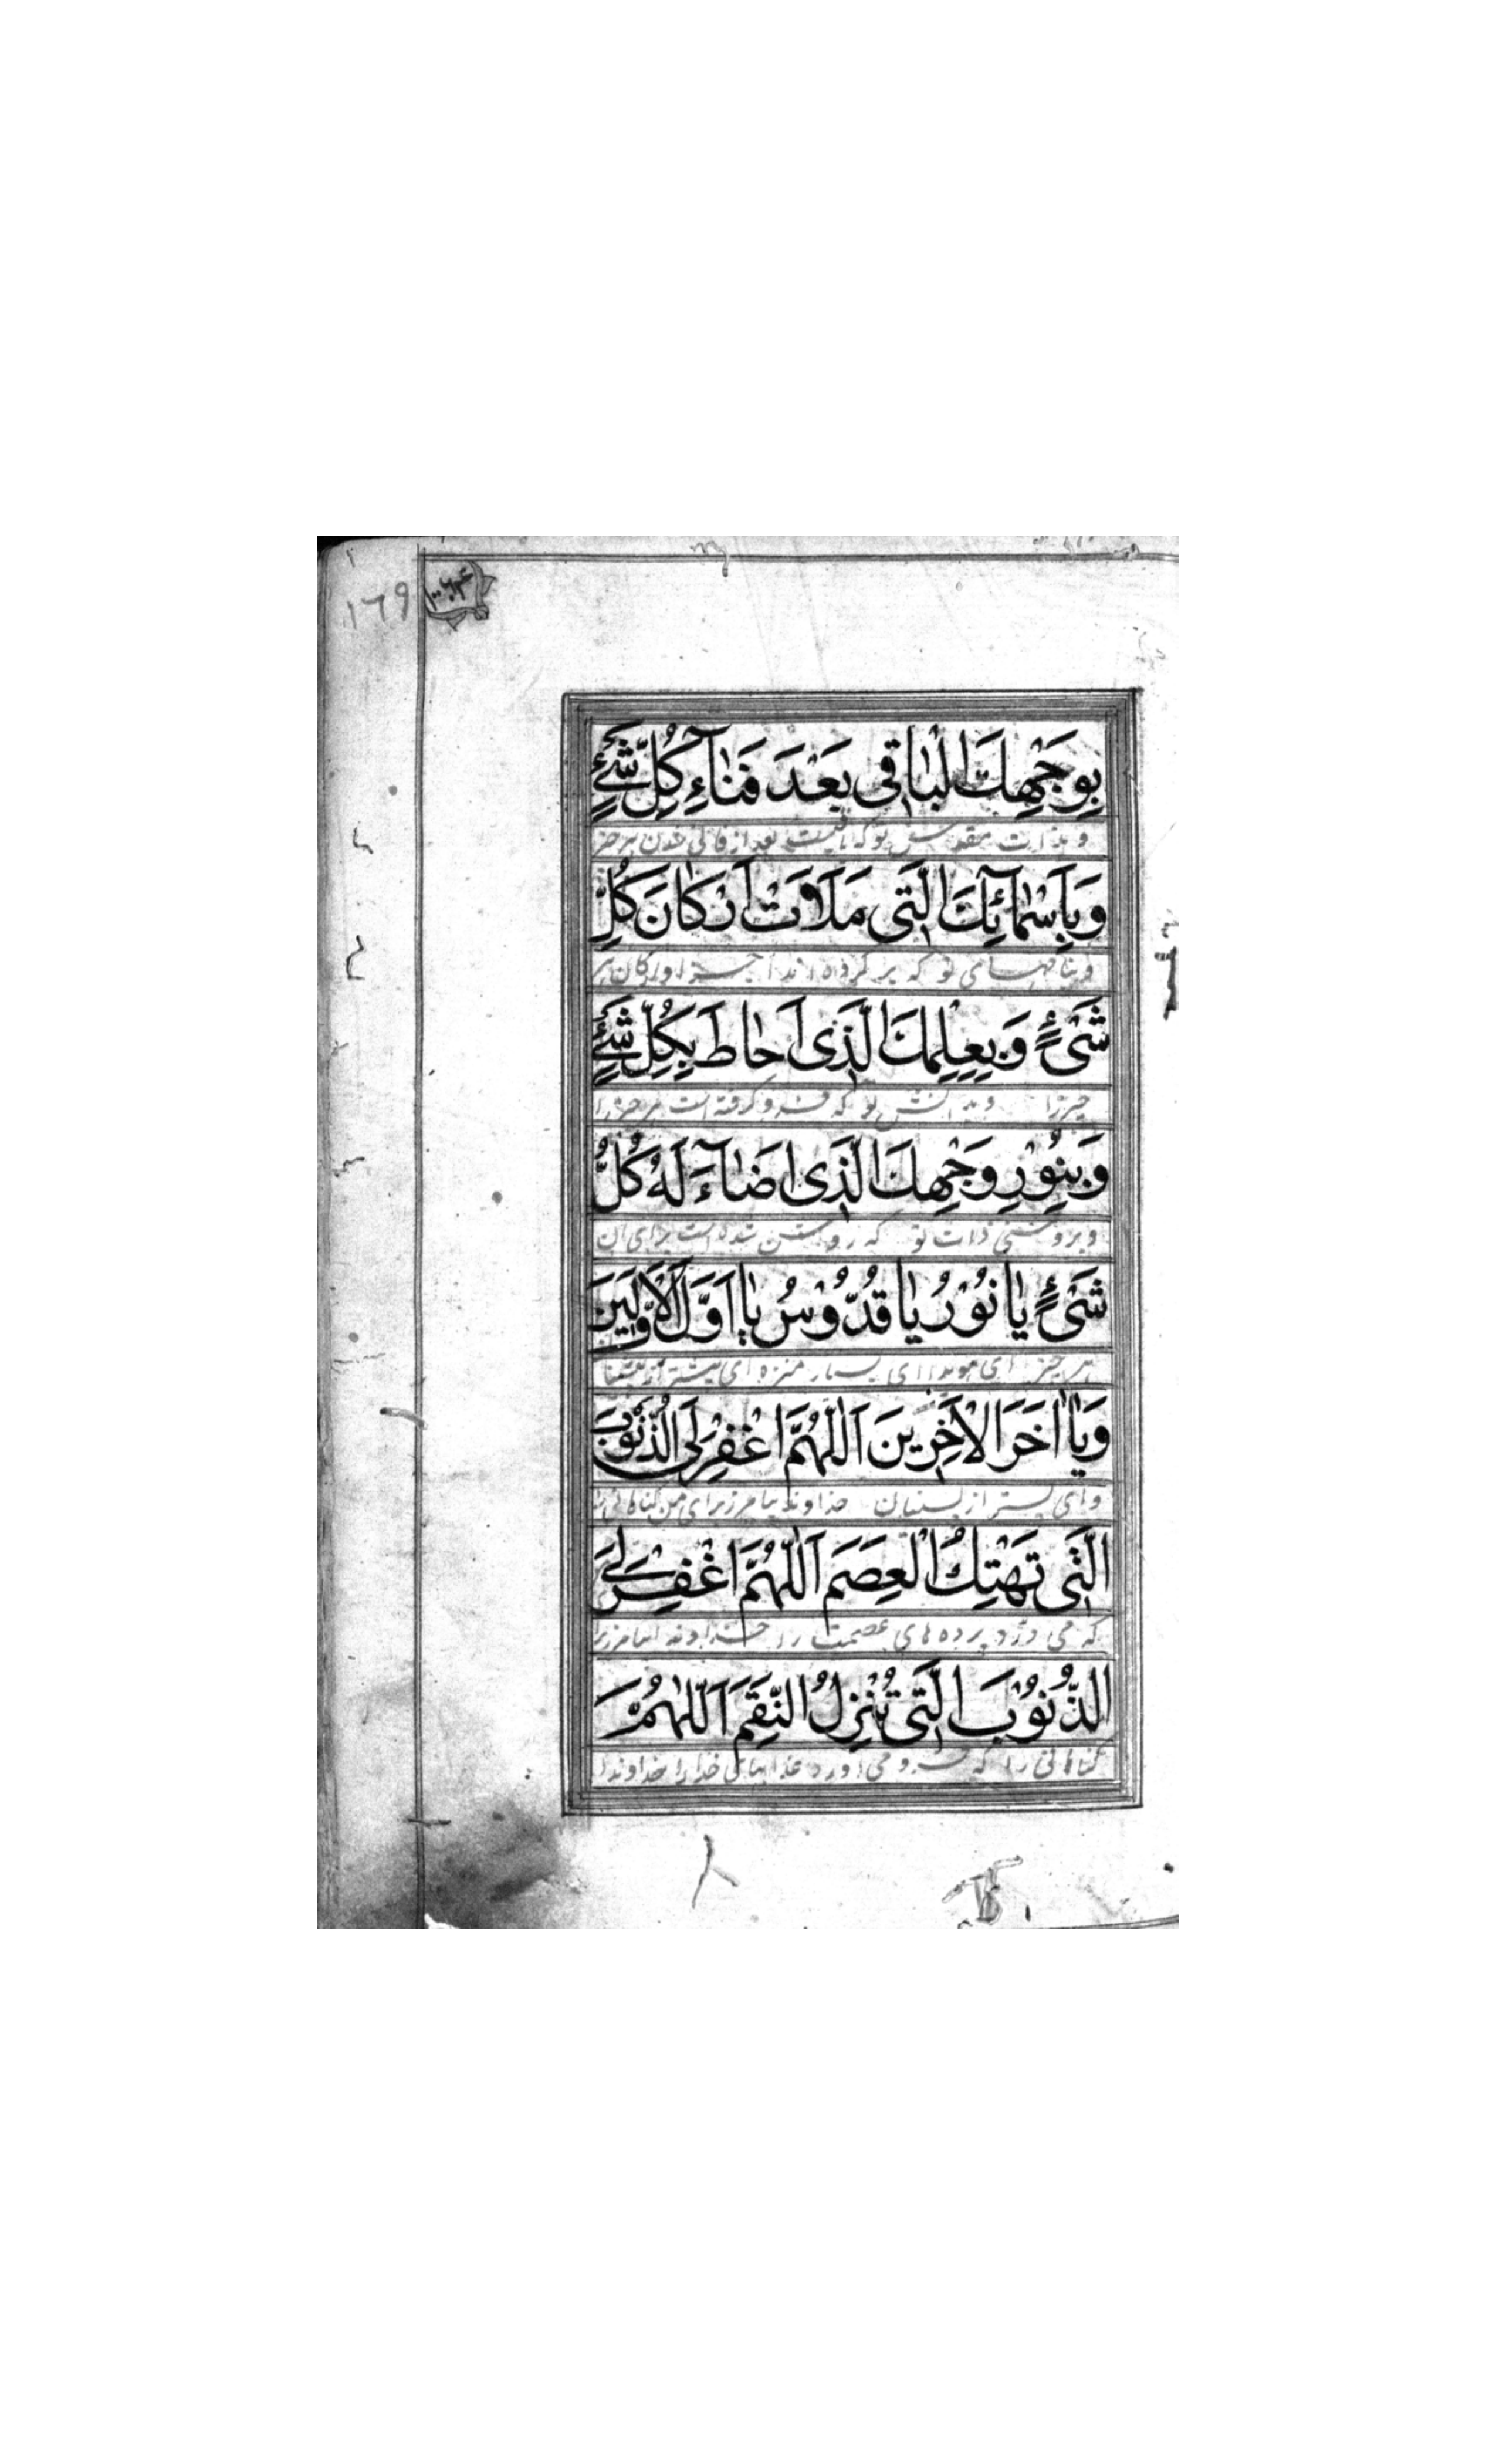 ١٦٩
بِوَجْهِكَ الْبٰاقِي بَعْدَ فَنٰآءِ كُلِّ شَيْءٍ
و بذات مقدس تو که باقیست بعد از فانی شدن هر چیز
وَبِاَسْمٰآئِكَ الَّتِي مَلَاَتْ اَرْكٰانَ كُلِّ
و بنامهای تو که پر کرده اند ارکان هر
شَيْءٍ وَبِعِلْمِكَ الَّذِي اَحٰاطَ بِكُلِّ شَيْءٍ
چیز را و بدانش تو که فرو گرفته است هر چیز را
وَبِنُوْرِ وَجْهِكَ الَّذِي اَضٰآءَ لَهُ كُلُّ
و بروشنی ذات تو که روشن شده است برای آن
شَيْءٍ يٰا نُوْرُ يٰا قُدُّوْسُ يٰا اَوَّلَ الْاَوَّلِيْنَ
هر چیز ای نور ای بسیار منزه ای پیشتر از
وَيٰا اٰخِرَ الْاٰخِرِيْنَ اَللّٰهُمَّ اغْفِرْ لِيَ الذُّنُوْبَ
و ای پستر از پسینیان خداوندا بیامرز برای من گناهانی
الَّتِي تَهْتِكُ الْعِصَمَ اَللّٰهُمَّ اغْفِرْ لِيَ
که می درد پرده های عصمت را خداوندا بیامرز
الذُّنُوْبَ الَّتِي تُنْزِلُ النِّقَمَ اَللّٰهُمَّ
گناهانی را که فرو می اورد عذابهای خدا را خداوندا